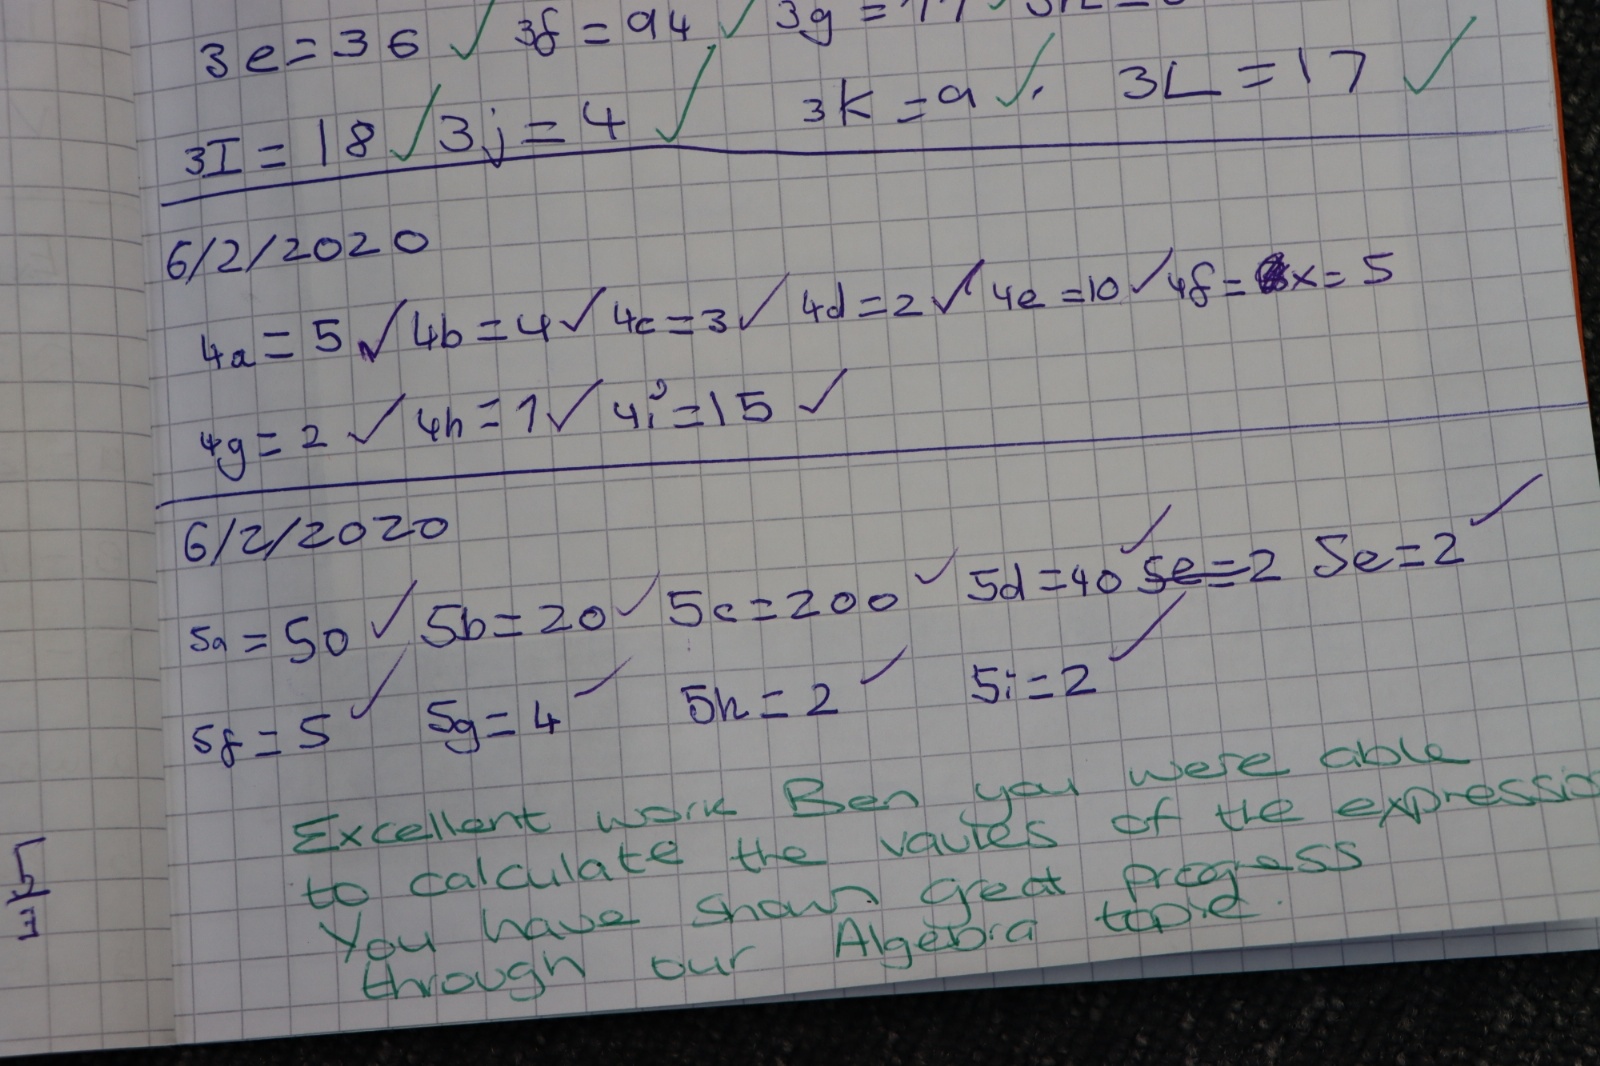 3e=36 ✓ 3f=94 ✓ 3g=
3I=18 ✓ 3j=4 ✓ 3K=9 ✓. 3L=17 ✓
6/2/2020
4a=5 ✓ 4b=4 ✓ 4c=3 ✓ 4d=2 ✓ 4e=10 ✓ 4f= x=5
4g=2 ✓ 4h=1 ✓ 4i=15 ✓
6/2/2020
5a=50 ✓ 5b=20 ✓ 5c=200 ✓ 5d=40 ✓ 5e=2 5e=2 ✓
5f=5 ✓ 5g=4 ✓ 5h=2 ✓ 5i=2 ✓
Excellent work Ben you were able
to calculate the vaules of the expressio
You have shown great progress
through our Algebra topic.
5
3